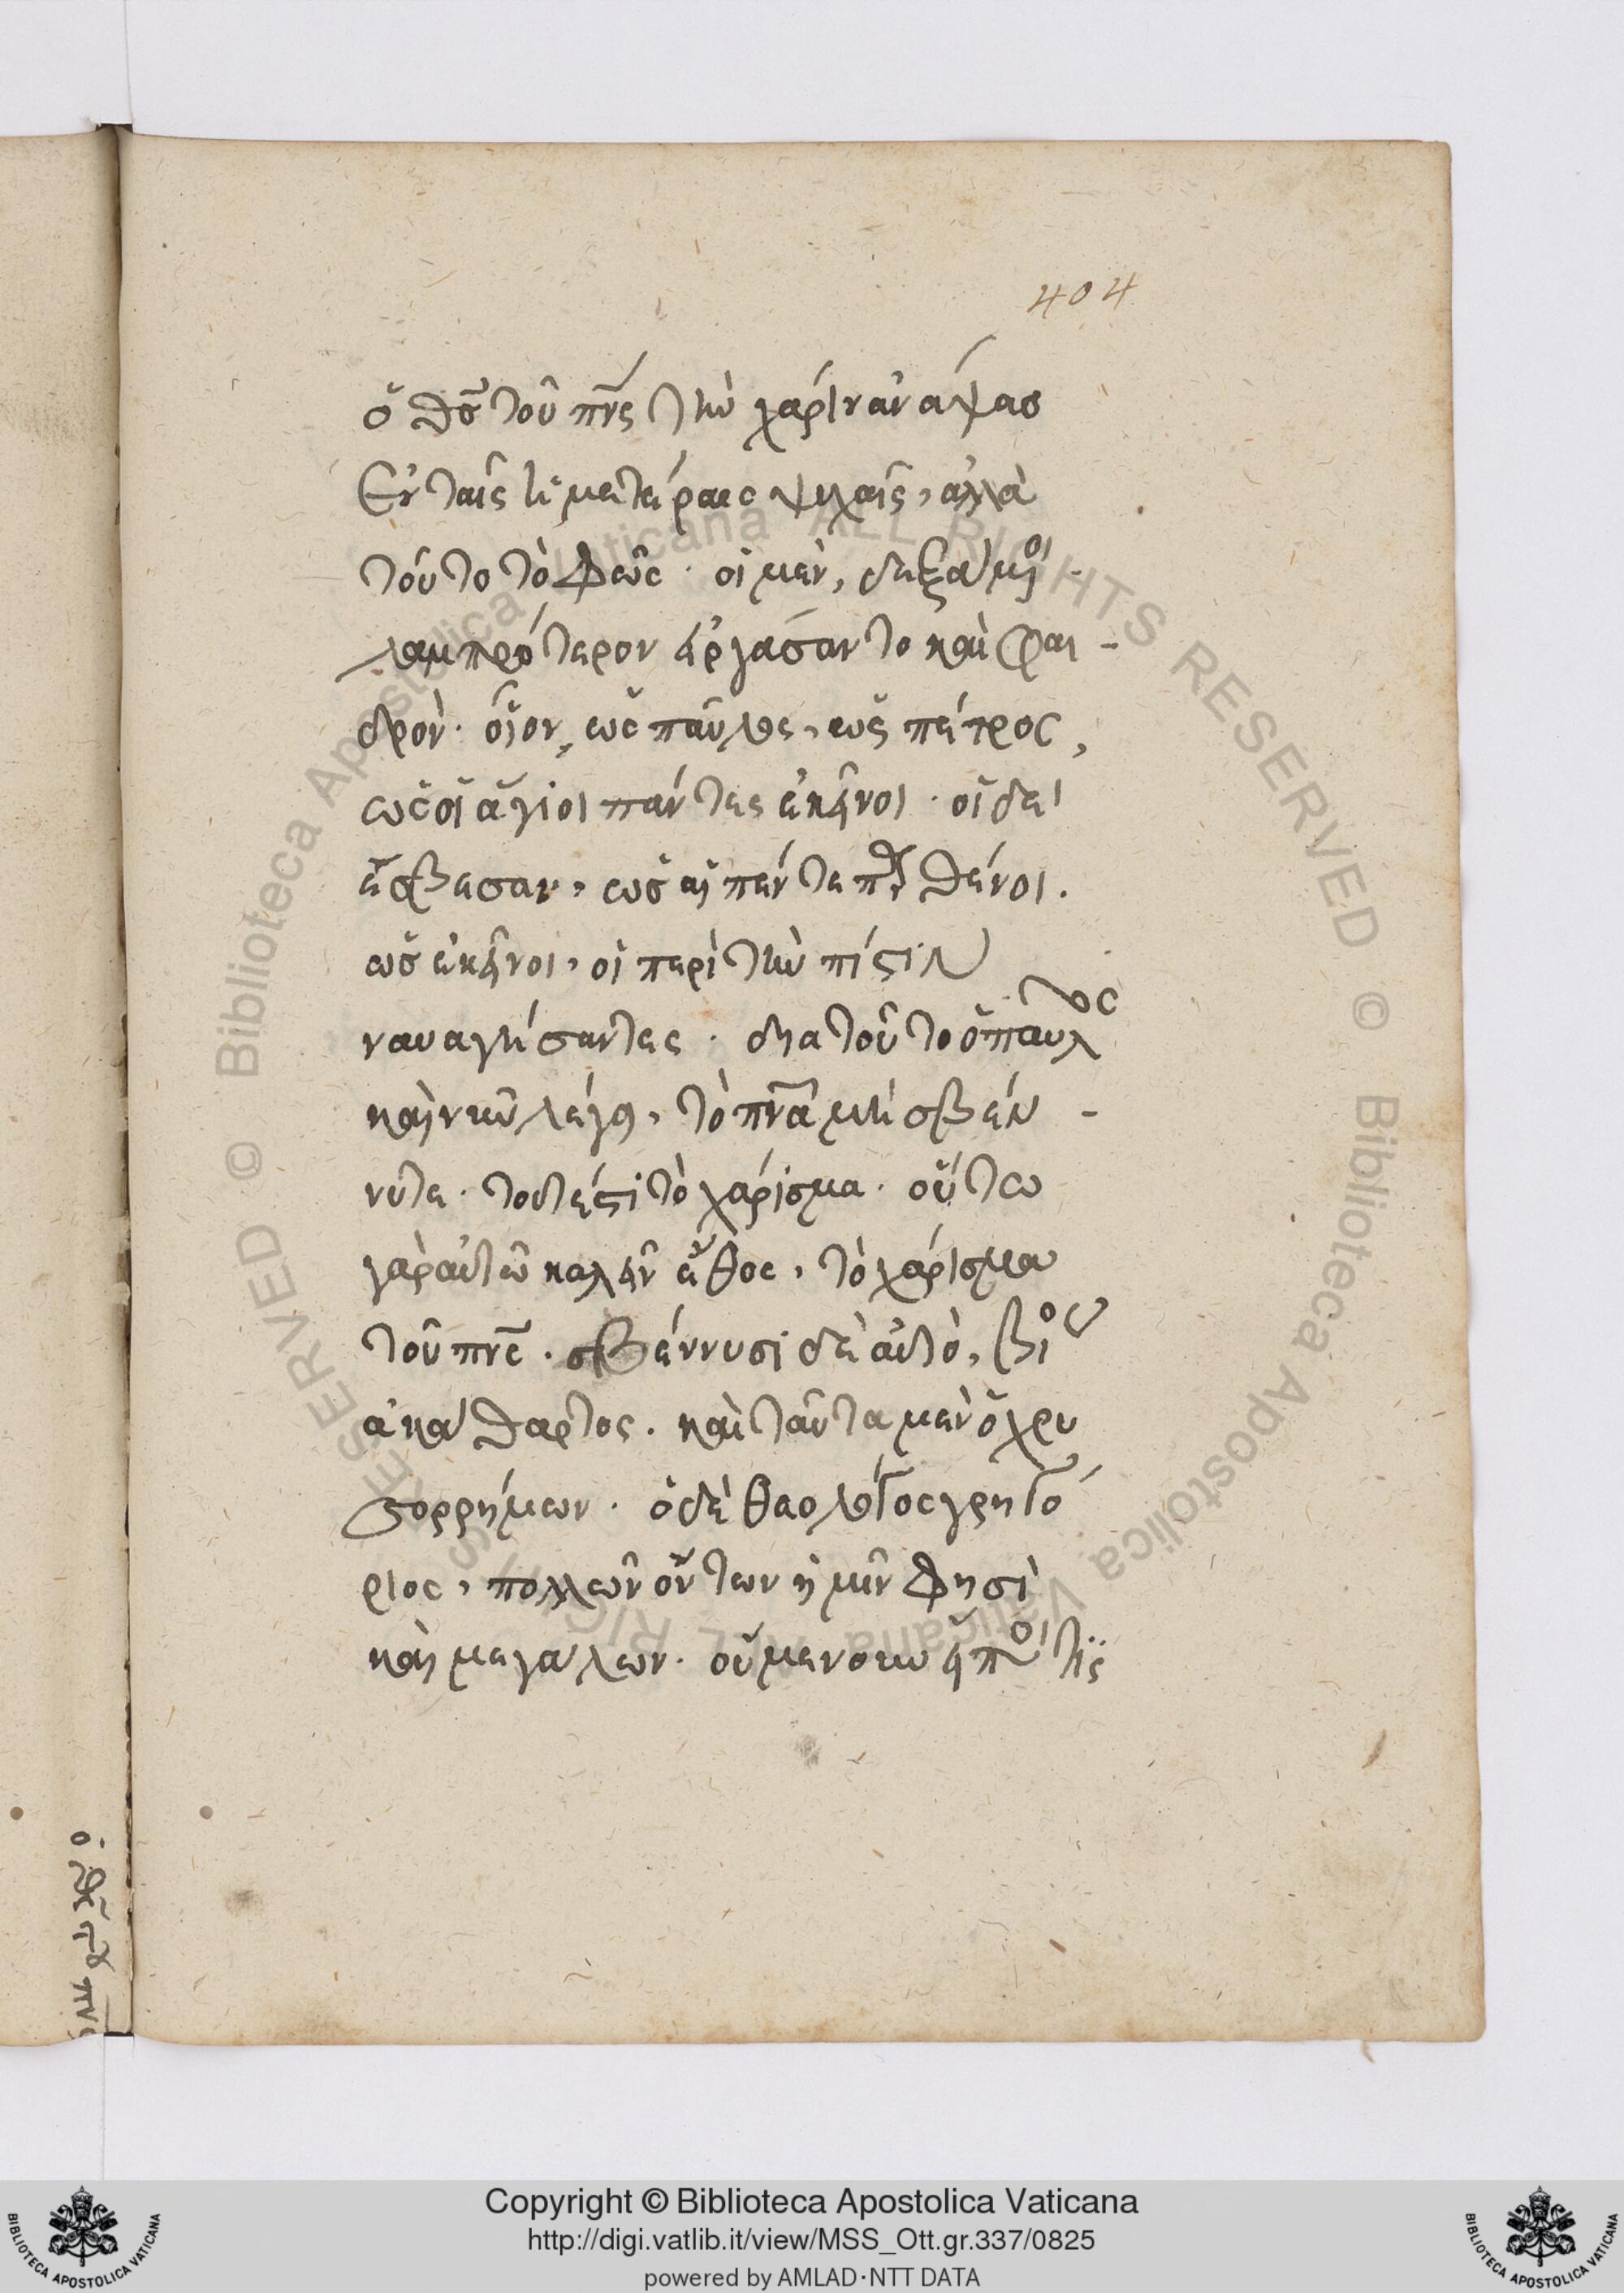 404
ὁ θς̅ τοῦ πνς̅ τὴν χάριν ἀνάψας
Ἐν ταῖς ἡμετέραις ψυχαῖς, ἀλλὰ
τοῦτο τὸ φῶς · οἱ μὲν, δεξάμοι
λαμπρότερον εἰργάσαντο καὶ φαι -
δρόν · οἷον, ὡς παῦλος, ὡς πέτρος,
ὡς οἱ ἅγιοι πάντες ἐκεῖνοι · οἱ δὲ
ἔσβεσαν, ὡς αἱ πέντε πρθένοι.
ὡς ἐκεῖνοι, οἱ περὶ τὴν πίστιν
ναυαγήσαντες · δια τοῦτο ὁ παῦλος
καὶ νῦν λέγει, τὸ πνα̅ μὴ σβέν -
νυτε · τουτέστι τὸ χάρισμα · οὕτω
γὰρ αὐτῶ καλεῖν ἔθος, τὸ χάρισμα
τοῦ πνς̅ · σβέννυσι δὲ αὐτὸ, βίος
ἀκάθαρτος. καὶ ταῦτα μὲν ὁ χρυ
σορρήμων · ὁ δὲ θεολόγος γρηγό
ριος, πολλῶν ὄντων ἡμῖν φησὶ
καὶ μεγάλων · οὐ μενοῦν εἴποι τίς
Copyright © Biblioteca Apostolica Vaticana
http://digi.vatlib.it/view/MSS_Ott.gr.337/0825
powered by AMLAD·NTT DATA
BIBLIOTECA APOSTOLICA VATICANA
BIBLIOTECA APOSTOLICA VATICANA
© Biblioteca Apostolica Vaticana ALL RIGHTS RESERVED
© Biblioteca Apostolica Vaticana ALL RIGHTS RESERVED